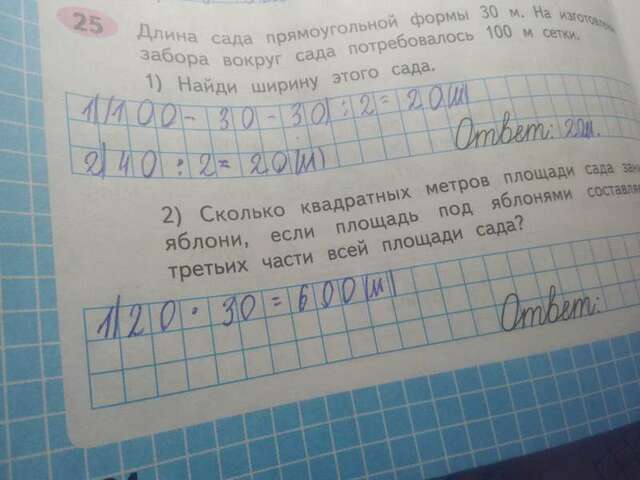 25
Длина сада прямоугольной формы 30 м. На
забора вокруг сада потребовалось 100 м сетки.
1) Найди ширину этого сада.
1)(100-30-30):2=20(м)
Ответ: 20м.
2) 40:2=20(м)
2) Сколько квадратных метров площади сада
яблони, если площадь под яблонями
третьих части всей площади сада?
1) 20·30=600(м)
Ответ: